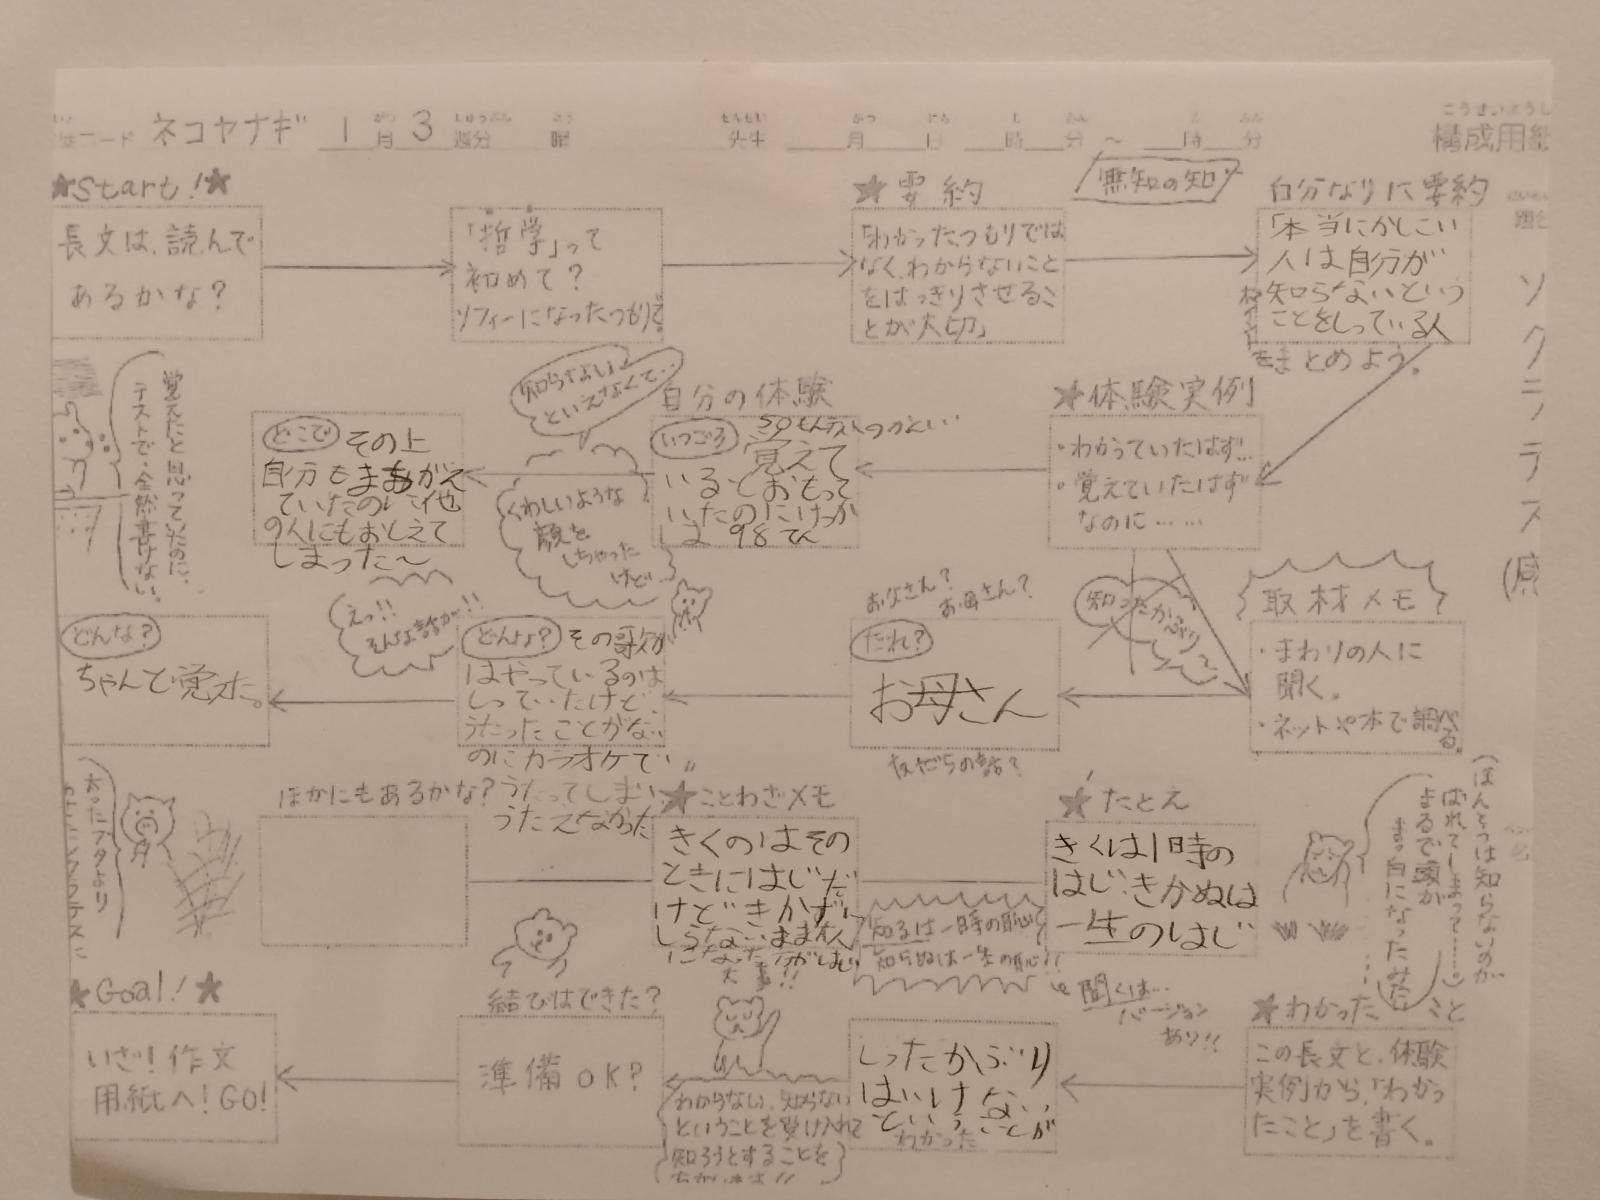 コード ネコヤナギ 1月3週分 曜 先生 月 日 時 分 〜 時 分 構成用紙
★Start!★
長文は、読んで
あるかな?
「哲学」って
初めて?
ソフィーになったつもりで。
★要約
「わかったつもりでは
なく、わからないこと
をはっきりさせるこ
とが大切」
無知の知
自分なりに要約
「本当にかしこい
人は自分が
知らないという
ことをしっている人
ポイント
をまとめよう。
ソクラテス
★体験実例
・わかっていたはず…
・覚えていたはず
なのに……
自分の体験
いつごろ
覚えて
いるとおもって
いたのにけっか
は 98てん
知らないよ
といえなくて…
くわしいような
顔を
しちゃった
けど…
どこで その上
自分もまちがえ
ていたのに他
の人にもおしえて
しまった〜
覚えたと思っていたのに、
テストで、全然書けない。
取材メモ
・まわりの人に
聞く。
・ネットや本で調べる。
知ったかぶり〜
お父さん?
お母さん?
だれ?
お母さん
友だちの話?
えっ!!
そんな話が!!
どんな? その歌が
はやっているのは
しっていたけど、
うたったことがない
のにカラオケで
うたってしまい
うたえなかった
どんな?
ちゃんと覚えた。
ほかにもあるかな?
太ったブタより
★ことわざメモ
きくのはその
ときにはじだ
けどきかずに
しらないまま大人
になった方がはじ
大事!!
知るは一時の恥
知らぬは一生の恥!!
★たとえ
きくは1時の
はじ.きかぬは
一生のはじ
聞くは…
バージョン
あり!!
(ほんとうは知らないのが
ばれてしまって……。)
まるで頭が
まっ白になったみたい
★わかったこと
この長文と、体験
実例から、「わかっ
たこと」を書く。
しったかぶり
はいけない
ということが
わかった
わからない、知らない
ということを受け入れて
知ろうとすることを
結びはできた?
準備OK?
★Goal!★
いざ!作文
用紙へ!GO!